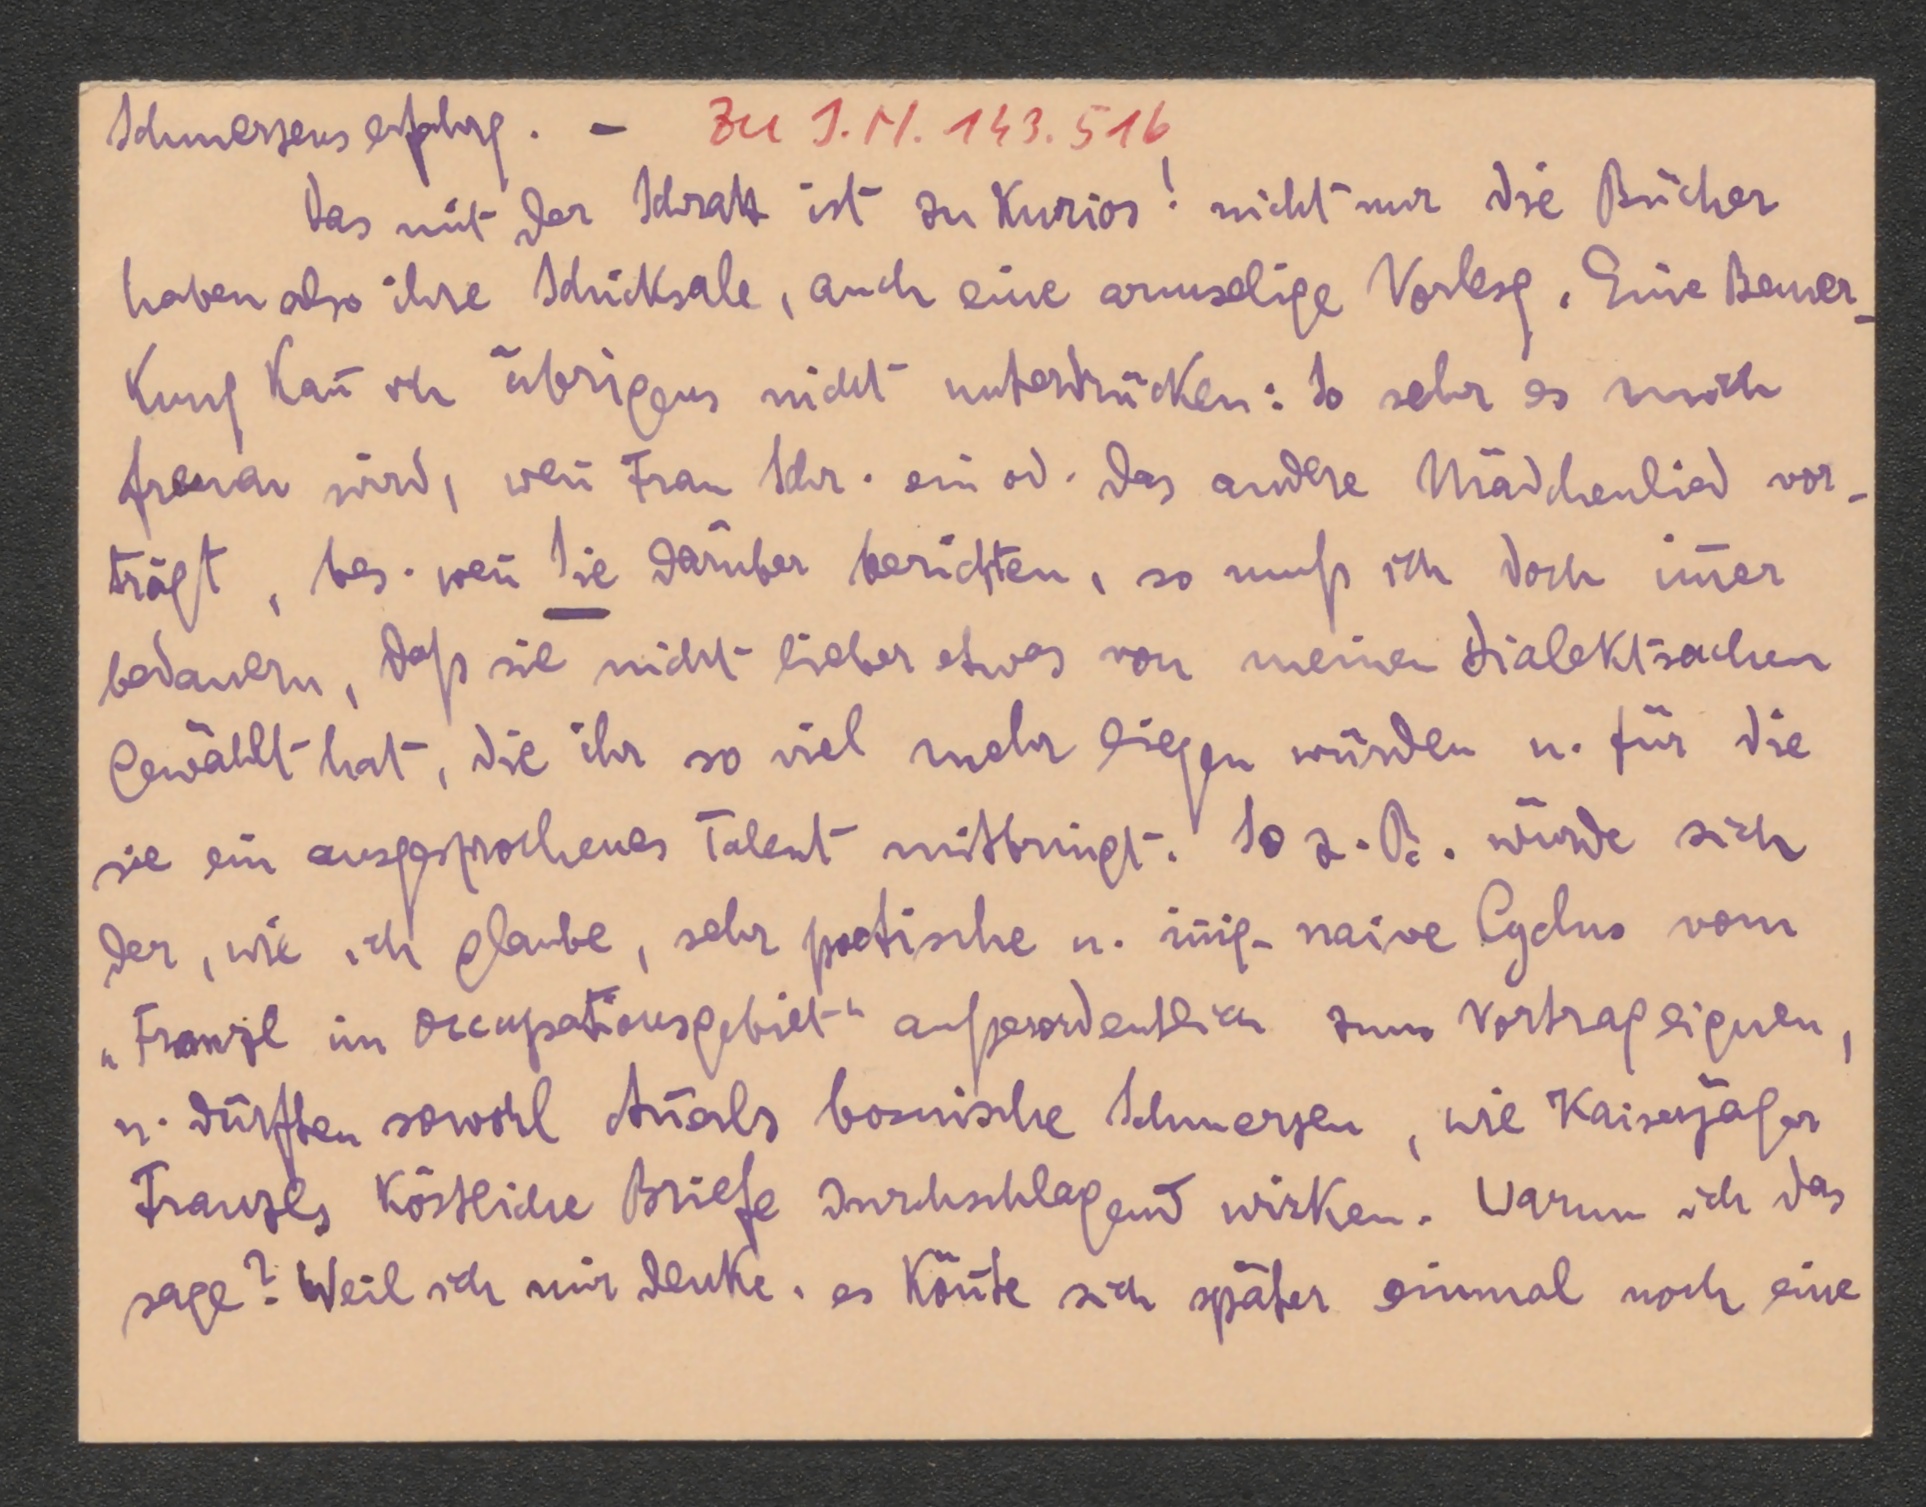 Schmerzenserfahrg. – Zu I.N. 143.516
Das mit der Schratt ist zu kurios! nicht nur die Bücher
haben also ihre Schicksale, auch eine armselige Vorlesg. Eine Bemer-
kung kan̄ ich übrigens nicht unterdrücken: So sehr es mich
freuen wird, wen̄ Frau Schr. ein od. das andere Mädchenlied vor-
trägt, bes. wen̄ Sie darüber berichten, so muß ich doch im̄er
bedauern, daß sie nicht lieber etwas von meinen Dialektsachen
gewählt hat, die ihr so viel mehr liegen würden u. für die
sie ein ausgesprochenes Talent mitbringt. So z. B. würde sich
der, wie ich glaube, sehr poetische u. in̄ig-naive Cyclus vom
„Franzl im Occupationsgebiet“ außerordentlich zum Vortrag eignen,
u. dürften sowohl An̄erls bosnische Schmerzen, wie Kaiserjäger
Franzls köstliche Briefe durchschlagend wirken. Warum ich das
sage? Weil ich mir denke, es kön̄te sich später einmal noch eine